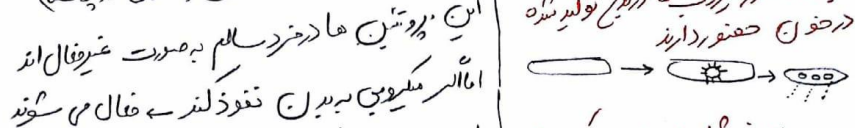 این پروتئین ها در فرد سالم به صورت غیرفعال اند
اما اگر میکروبی به بدن نفوذ کند ← فعال می شوند
تولید شده
در خون حضور دارند